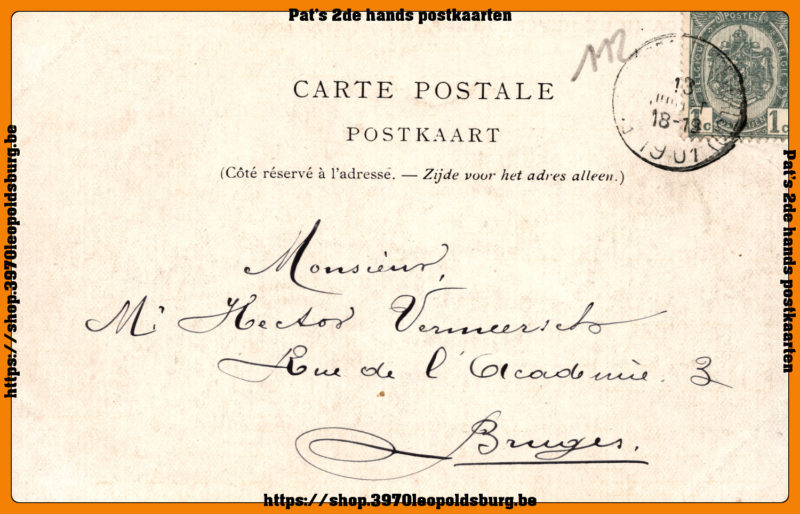 Pat's 2de hands postkaarten
112
POSTES
1c 1c
13
18-19
1901
CARTE POSTALE
POSTKAART
(Côté réservé à l'adresse. — Zijde voor het adres alleen.)
Monsieur,
Mr Hector Vermeersch
Rue de l'Academie. 3
Bruges.
https://shop.3970leopoldsburg.be
Pat's 2de hands postkaarten
https://shop.3970leopoldsburg.be